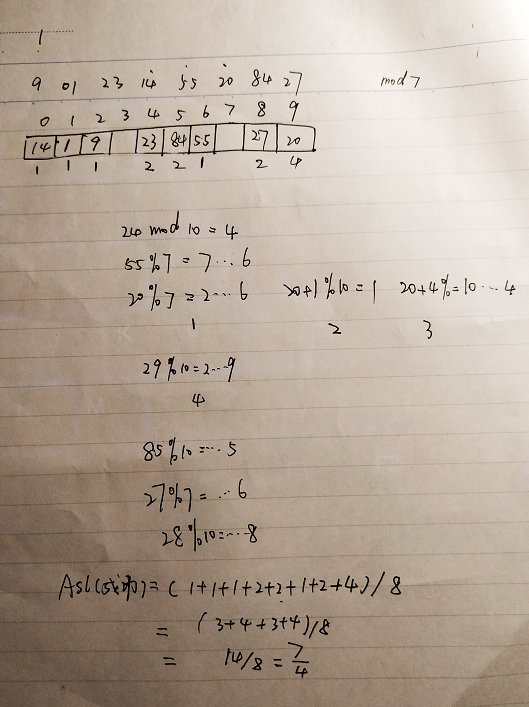 1
9 01 23 14 55 20 84 27 mod 7
0 1 2 3 4 5 6 7 8 9
14 1 9 23 84 55 27 20
1 1 1 2 2 1 2 4
24 mod 10 = 4
55%7 = 7...6
20%7 = 2...6 20+1%10=1 20+4%=10...4
1 2 3
29%10=2...9
4
85%10=...5
27%7=...6
28%10=...8
Asl(成功)=(1+1+1+2+2+1+2+4)/8
= (3+4+3+4)/8
= 14/8 = 7/4